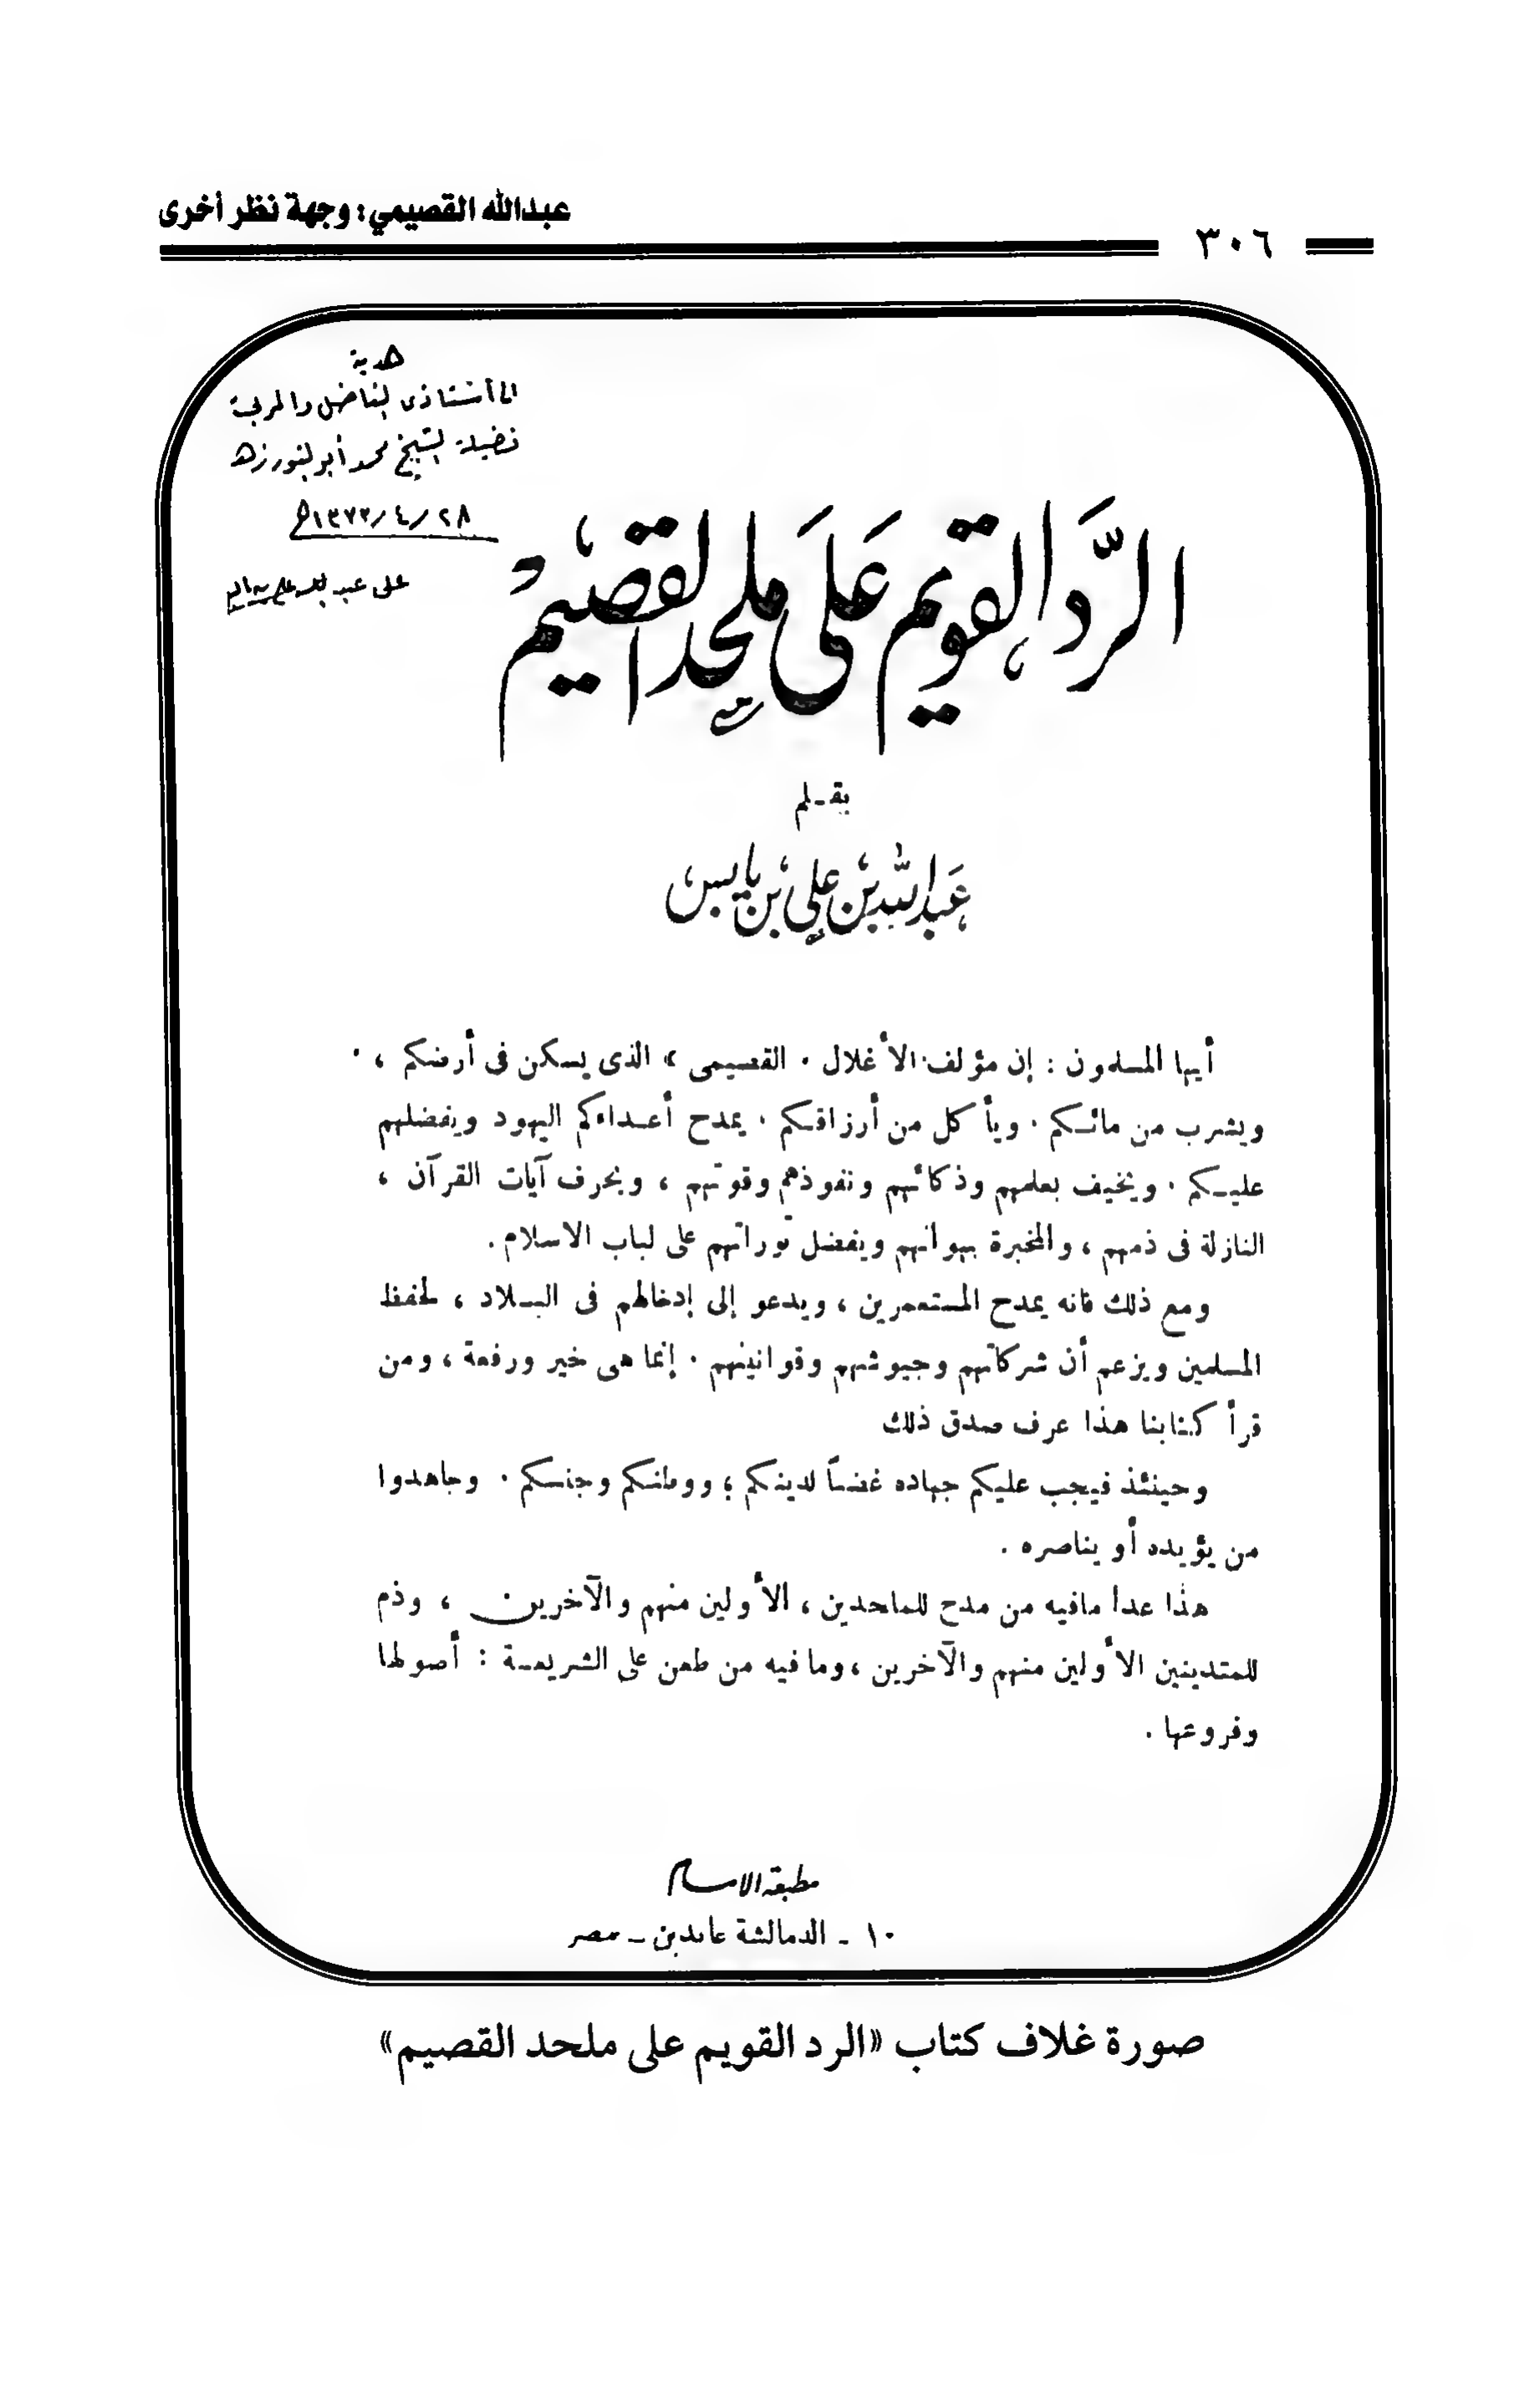 عبدالله القصيمي: وجهة نظر أخرى
٣٠٦
هدية
الى أستاذى الفاضل والمربى
فضيلة الشيخ محمد أبو النور زه
٢٨/٤/١٣٧٣هـ
على عبد
الرَّد القويم عَلَى ملحد القصيم
بقـلم
عبد الله بن علي بن يابس
أيها المسلمون : إن مؤلف الأغلال « القصيمى » الذى يسكن فى أرضكم ،
ويشرب من مائكم . ويأكل من أرزاقكم . يمدح أعداءكم اليهود ويفضلهم
عليكم . ويخيف بعلمهم وذكائهم ونفوذهم وقوتهم ، ويحرف آيات القرآن ،
النازلة فى ذمهم ، والمخبرة بهوانهم ويفضل توراتهم على لباب الاسلام .
ومع ذلك فانه يمدح المستعمرين ، ويدعو إلى إدخالهم فى البلاد ، لحفظ
المسلمين ويزعم أن شركاتهم وجيوشهم وقوانينهم . إنما هى خير ورفعة ، ومن
قرأ كتابنا هذا عرف صدق ذلك
وحينئذ فيجب عليكم جهاده غضباً لدينكم ؛ ووطنكم وجنسكم . وجاهدوا
من يؤيده أو يناصره .
هذا عدا مافيه من مدح للملحدين ، الأولين منهم والآخرين ، وذم
للمتدينين الأولين منهم والآخرين ، وما فيه من طعن على الشريعة : أصولها
وفروعها .
مطبعة الامام
١٠ - الدمالشة عابدين - مصر
صورة غلاف كتاب «الرد القويم على ملحد القصيم»